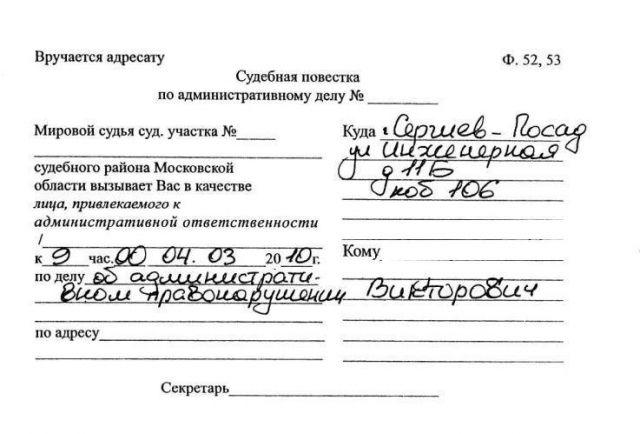 Вручается адресату
Ф. 52, 53
Судебная повестка
по административному делу №
Мировой судья суд. участка №
судебного района Московской
области вызывает Вас в качестве
лица, привлекаемого к
административной ответственности
/
к 9 час. 00 04. 03 2010г.
по делу об администрати-
вном правонарушении
по адресу
Куда г Сергиев - Посад
ул Инженерная
д 11Б
каб 106
Кому
Викторович
Секретарь